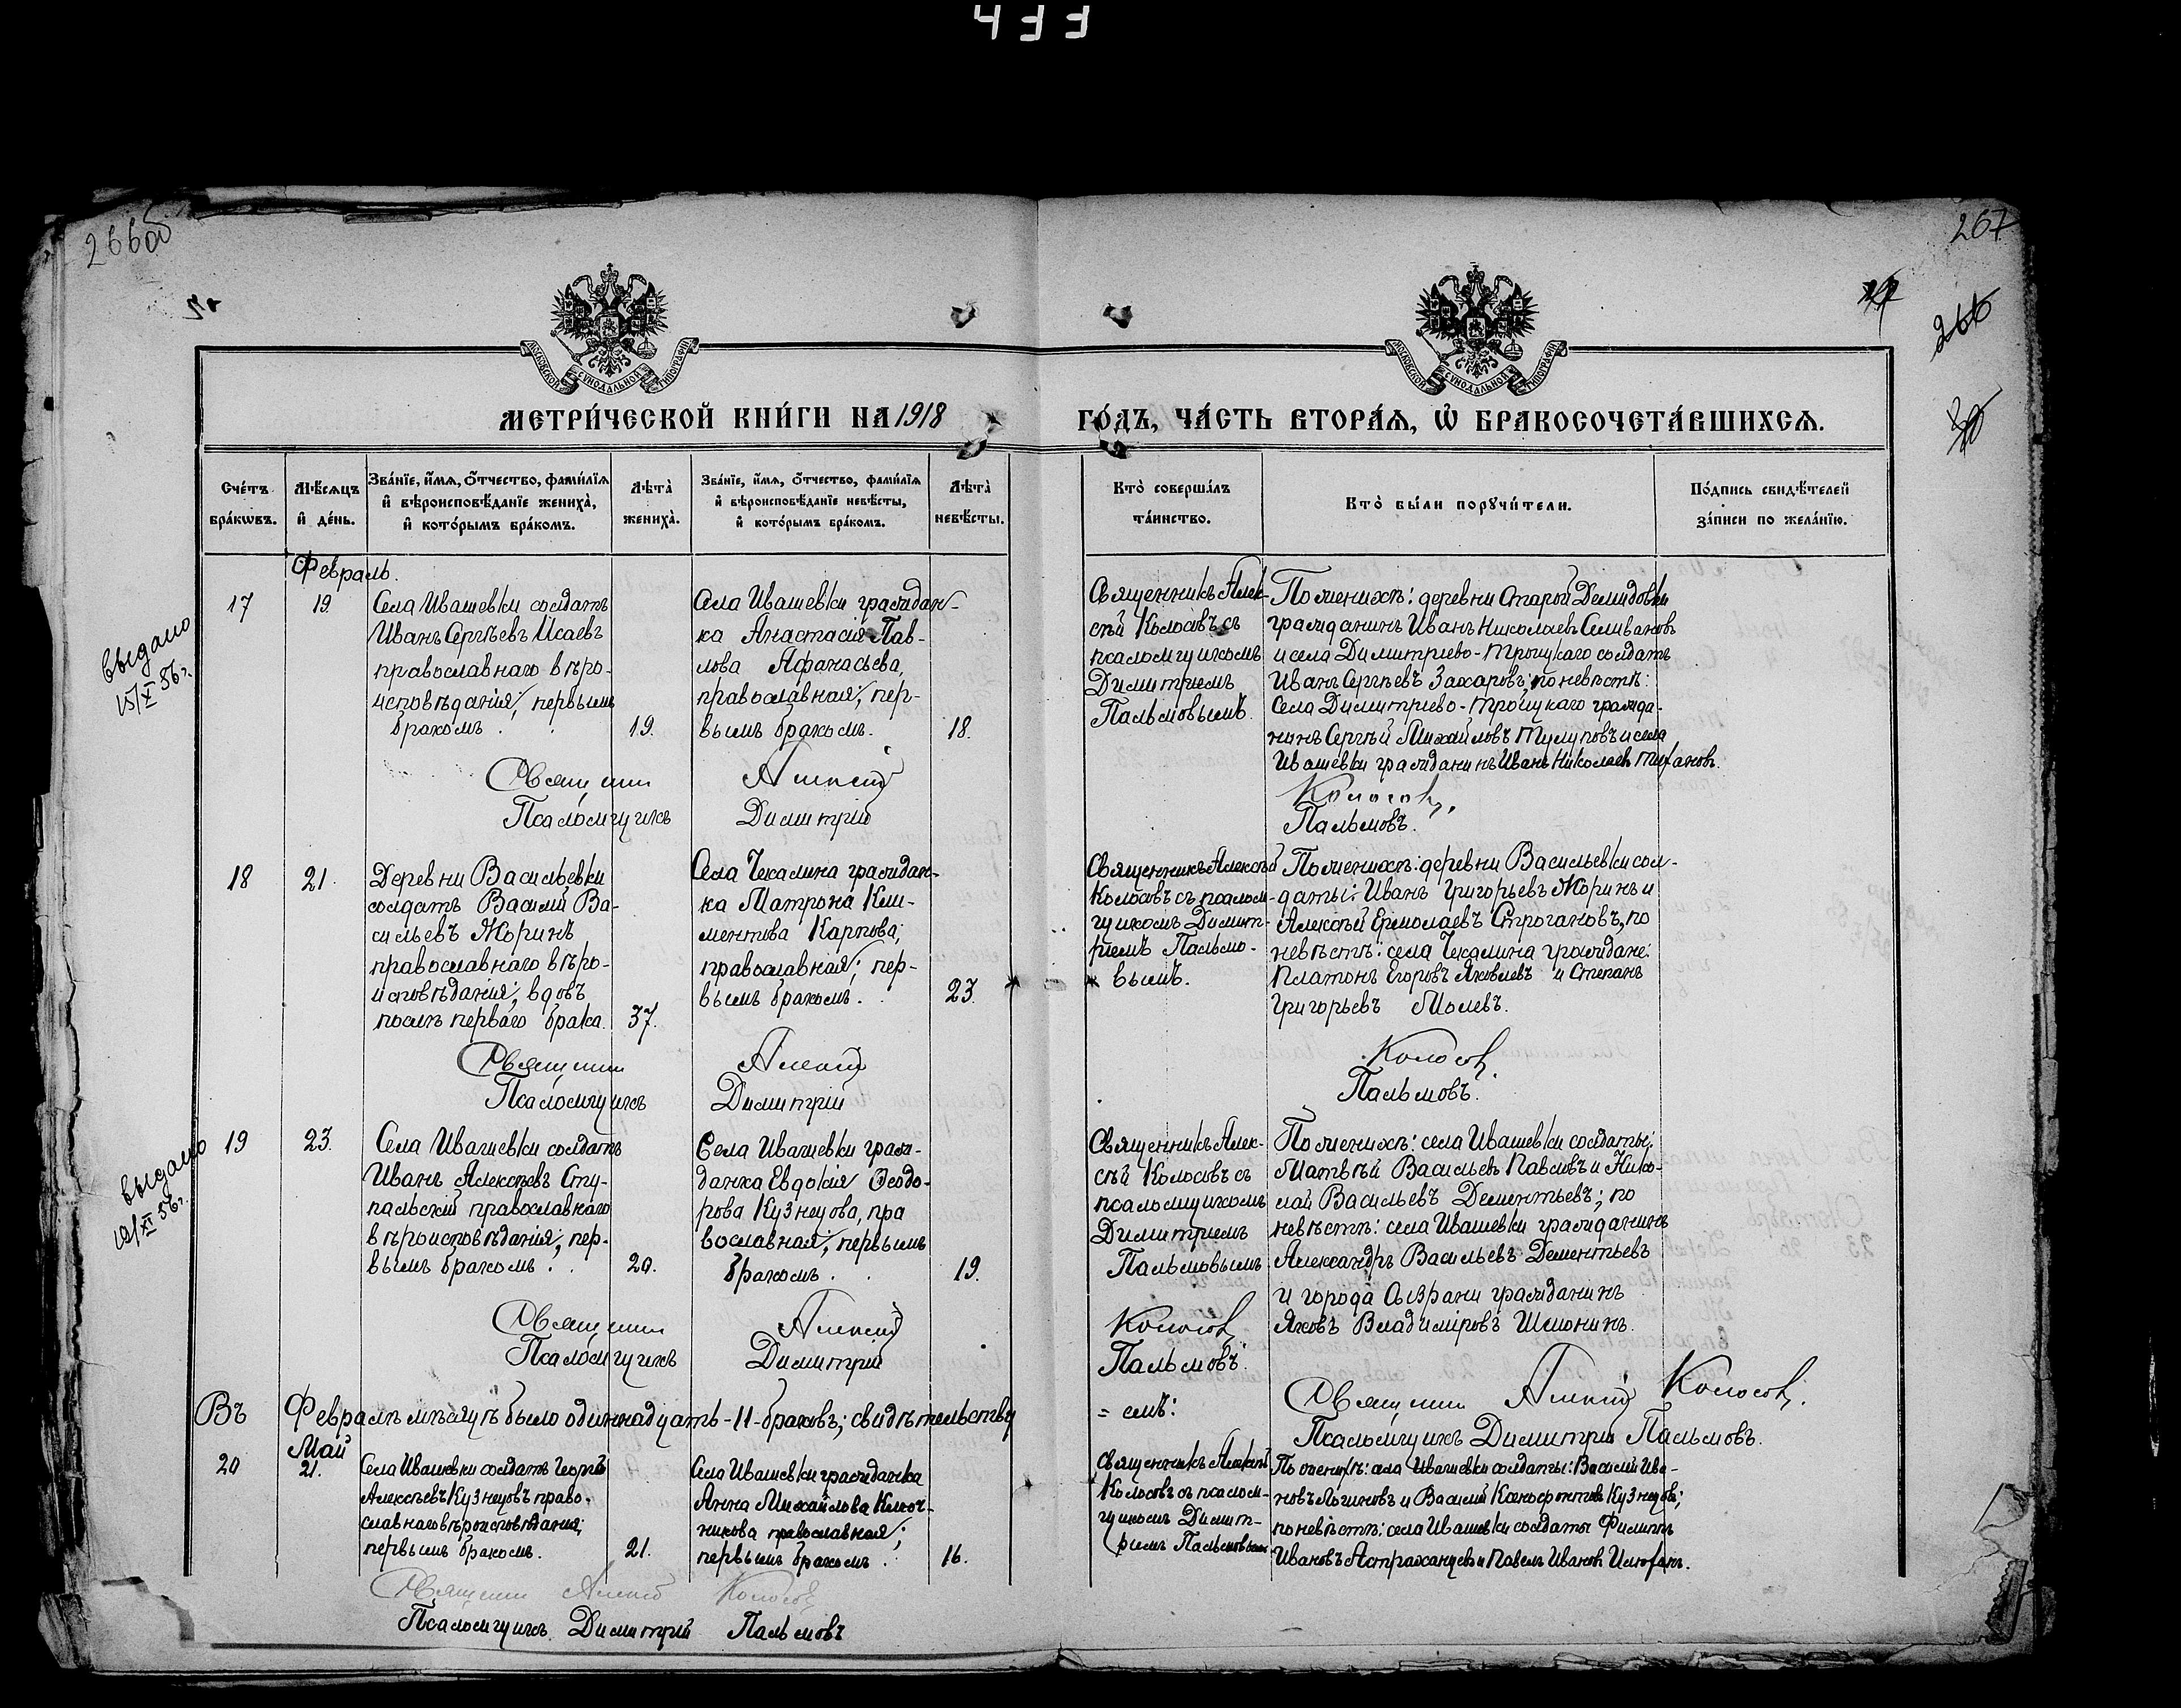 433
266об
267
266
МОСКОВСКОЙ СУНОДАЛЬНОЙ ТИПОГРАФІИ
МОСКОВСКОЙ СУНОДАЛЬНОЙ ТИПОГРАФІИ
МЕТРИ́ЧЕСКОЙ КНИ́ГИ НА 1918
ГО́ДЪ, ЧА́СТЬ ВТОРА́Ѧ, Ѽ БРАКОСОЧЕТА́ВШИХСѦ.
Сче́тъ
бра́кѡвъ.
Мѣ́сѧцъ
и҆ де́нь.
Зва́нїе, и҆́мѧ, ѻ҆́тчество, фами́лїѧ
и҆ вѣроисповѣ́данїе жениха̀,
и҆ кото́рымъ бра́комъ.
Лѣта̀
жениха̀.
Зва́нїе, и҆́мѧ, ѻ҆́тчество, фами́лїѧ
и҆ вѣроисповѣ́данїе невѣ́сты,
и҆ кото́рымъ бра́комъ.
Лѣта̀
невѣ́сты.
Кто̀ соверша́лъ
та́инство.
Кто̀ бы́ли порꙋчи́тели.
По́дпись свидѣ́телей
за́писи по жела́нїю.
Февраль.
выдано
15/X 56 г.
17
19
Села Ивашевки солдатъ
Иванъ Сергѣевъ Исаевъ
православнаго вѣро-
исповѣданія; первымъ
бракомъ.
19.
Села Ивашевки граждан-
ка Анастасія Пав-
лова Афанасьева,
православная; пер-
вымъ бракомъ.
18.
Священникъ Алек-
сѣй Колосовъ съ
псаломщикомъ
Димитріемъ
Пальмовымъ.
По женихѣ: деревни Старой Демидовки
гражданинъ Иванъ Николаевъ Селивановъ
и села Димитріево-Троицкаго солдатъ
Иванъ Сергѣевъ Захаровъ; по невѣстѣ:
Села Димитріево-Троицкаго гражда-
нинъ Сергѣй Михайловъ Тулуповъ и села
Ивашевки гражданинъ Иванъ Николаевъ Тифановъ.
Священник Алексій Колосовъ.
Псаломщикъ Димитрій Пальмовъ.
18
21.
Деревни Васильевки
солдатъ Василій Ва-
сильевъ Жоринъ
православнаго вѣро-
исповѣданія; вдовъ
послѣ перваго брака.
37.
Села Чекалина граждан-
ка Матрона Кли-
ментова Карпова;
православная; пер-
вымъ бракомъ.
23.
Священникъ Алексѣй
Колосовъ съ псалом-
щикомъ Димит-
ріемъ Пальмо-
вымъ.
По женихѣ: деревни Васильевки сол-
даты: Иванъ Григорьевъ Жоринъ и
Алексѣй Ермолаевъ Строгановъ, по
невѣстѣ: села Чекалина граждане:
Платонъ Егоровъ Яковлевъ и Степанъ
Григорьевъ Молевъ.
Священник Алексій Колосовъ.
Псаломщикъ Димитрій Пальмовъ.
выдано
19/XI 56 г.
19
23.
Села Ивашевки солдатъ
Иванъ Алексѣевъ Сту-
пальскій православнаго
вѣроисповѣданія; пер-
вымъ бракомъ.
20.
Села Ивашевки граж-
данка Евдокія Ѳеодо-
рова Кузнецова, пра
вославная; первымъ
бракомъ.
19.
Священникъ Алек-
сѣй Колосовъ съ
псаломщикомъ
Димитріемъ
Пальмовымъ
По женихѣ: села Ивашевки солдаты:
Матвѣй Васильевъ Павловъ и Нико-
лай Васильевъ Дементьевъ; по
невѣстѣ: села Ивашевки гражданинъ
Александръ Васильевъ Дементьевъ
и города Сызрани гражданинъ
Яковъ Владиміровъ Шмонинъ.
Священник Алексій Колосовъ
Псаломщикъ Димитрій Пальмовъ.
Въ Февралѣ мѣсяцѣ было одиннадцать -11- браковъ; свидѣтельству
= емъ:
Священник Алексій Колосовъ.
Псаломщикъ Димитрій Пальмовъ.
Май
20
21.
Села Ивашевки солдатъ Георгій
Алексѣевъ Кузнецовъ право-
славнаго вѣроисповѣданія;
первымъ бракомъ.
21.
Села Ивашевки гражданка
Анна Михайлова Ключ-
никова православная;
первымъ бракомъ.
16.
Священникъ Алексѣй
Колосовъ съ псалом-
щикомъ Димит-
ріемъ Пальмовымъ
По женихѣ: села Ивашевки солдаты: Василій Ива-
новъ Логиновъ и Василій Ксенофонтовъ Кузнецовъ;
по невѣстѣ: села Ивашевки солдаты Филиппъ
Ивановъ Астраханцевъ и Павелъ Ивановъ
Священник Алексій Колосовъ
Псаломщикъ Димитрій Пальмовъ